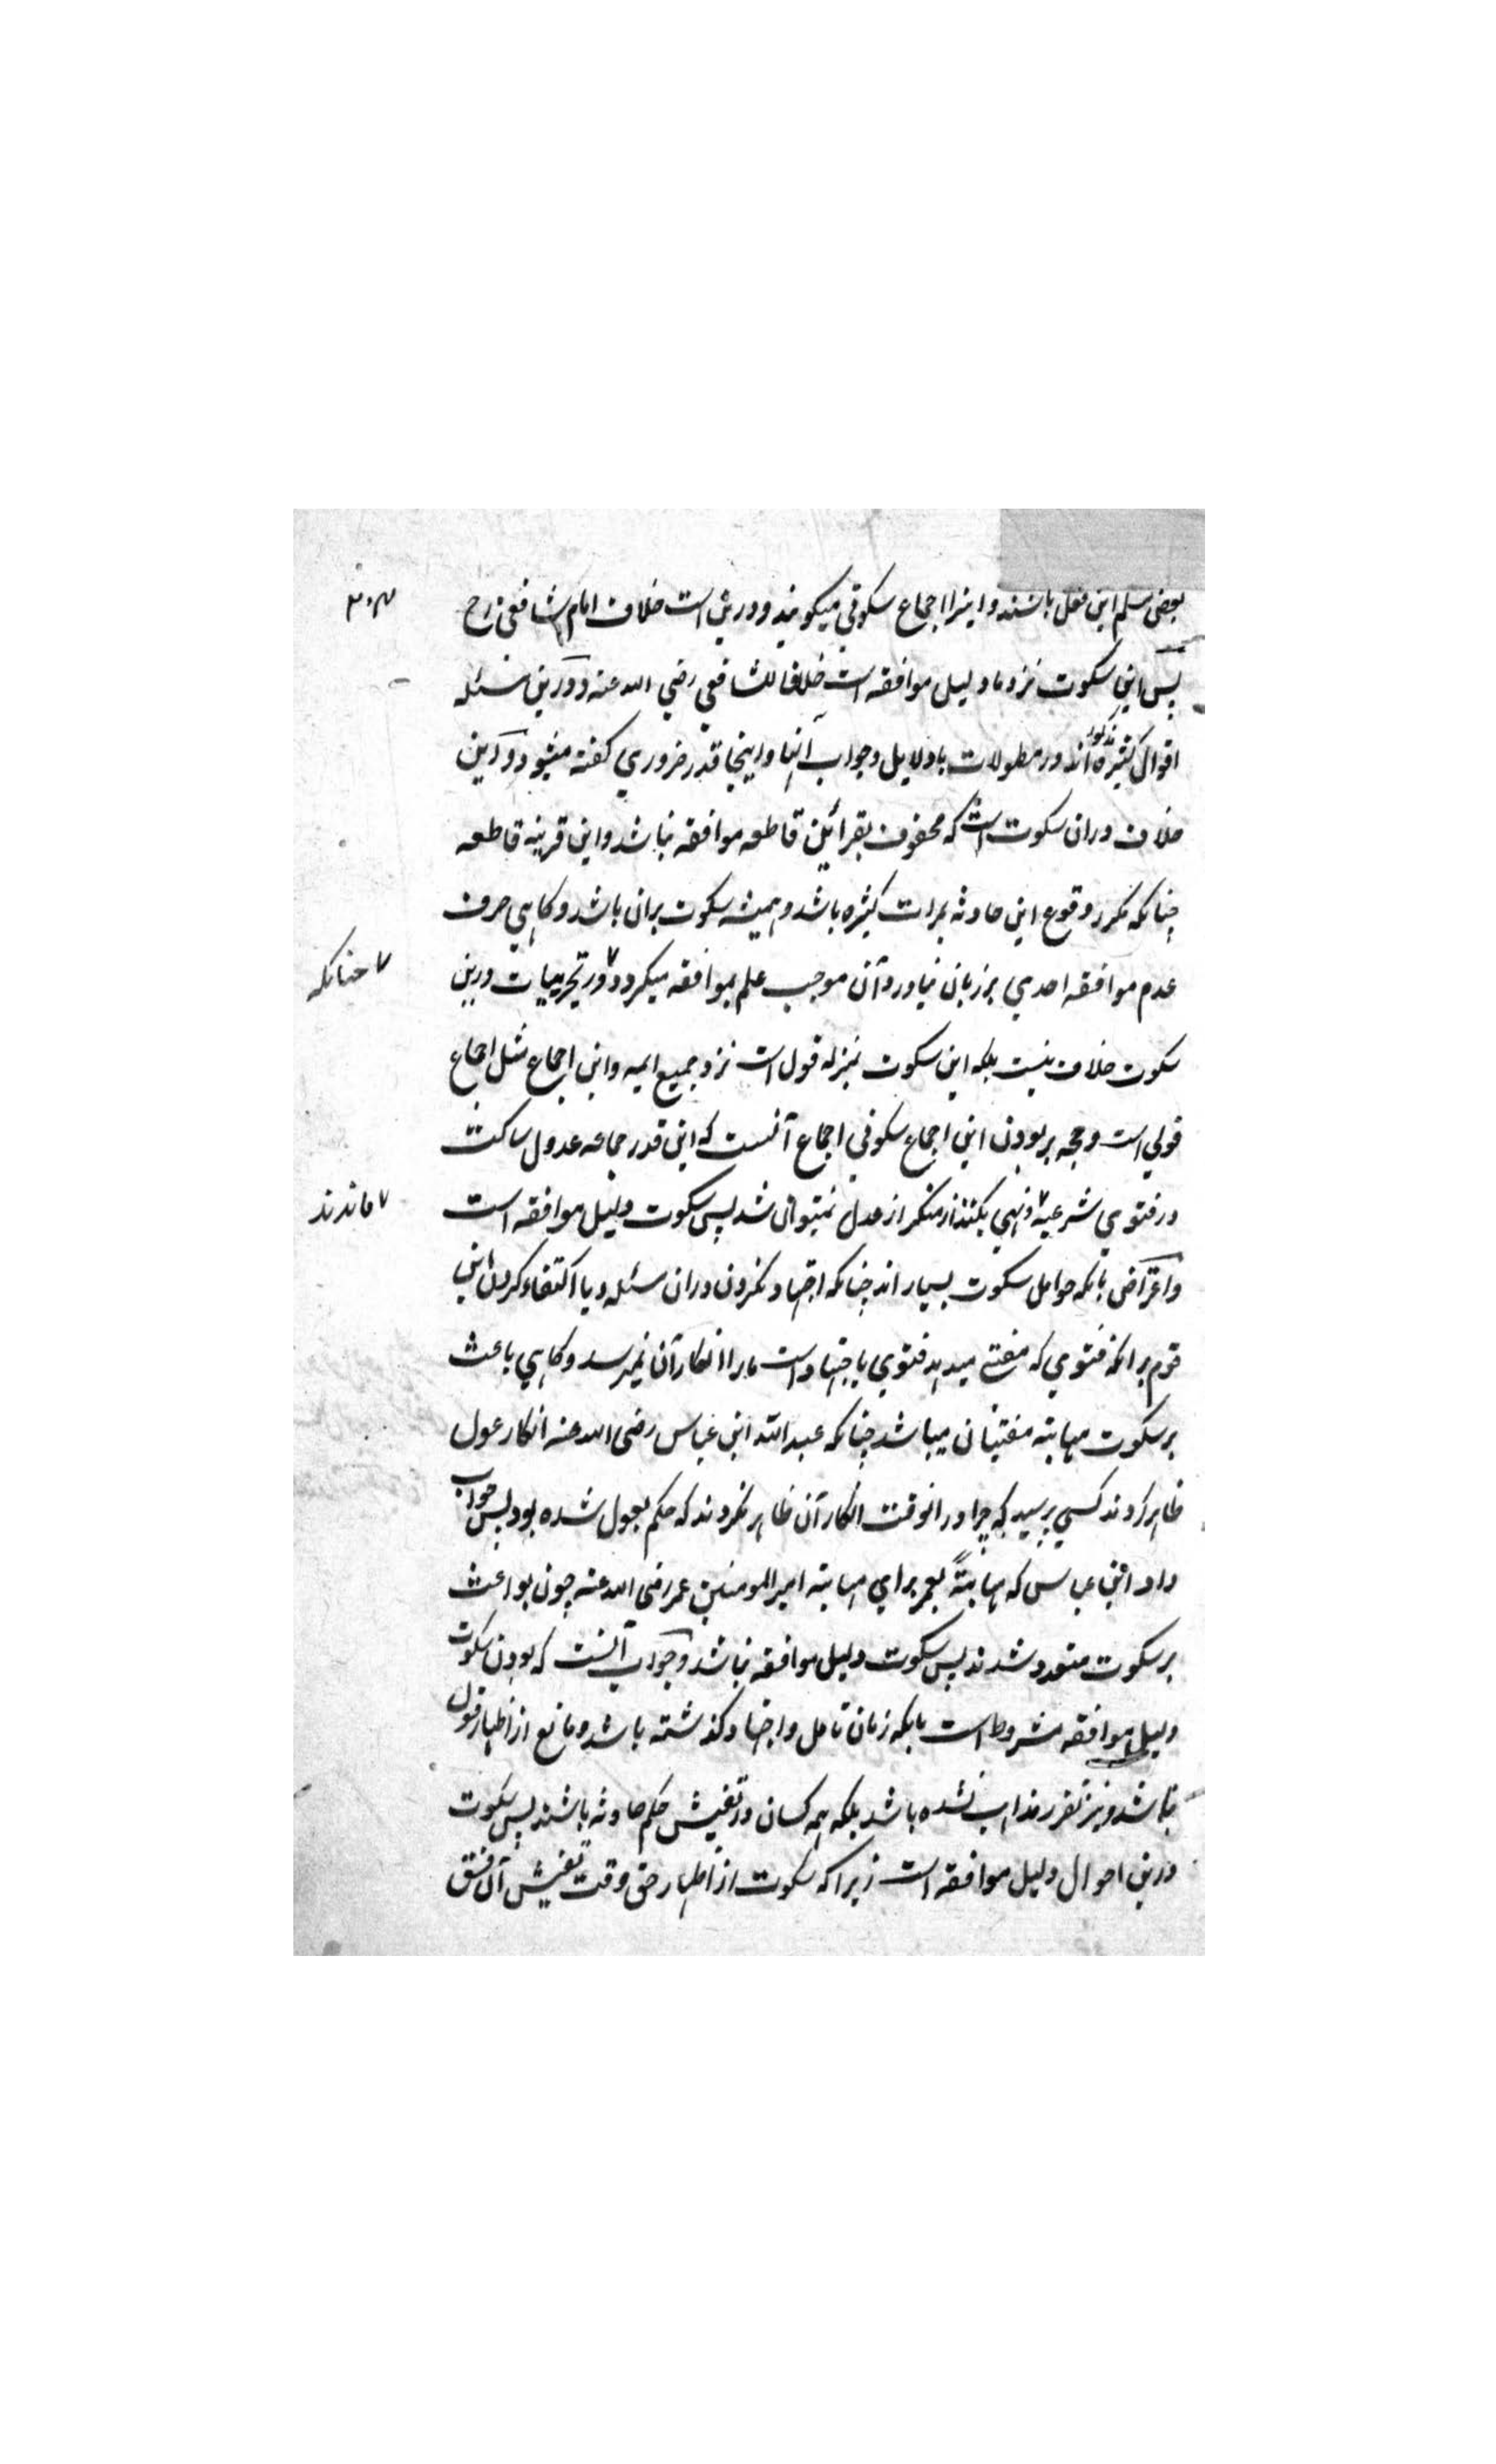 بعضی مسلم این فعل باشند و اینرا اجماع سکوتي میکویند و درین است خلاف امام شافعي رح
پس این سکوت نزد ما دلیل موافقه است خلافا للشافعي رضي الله عنه و درین مسئله
اقوال کثیره مذکور اند در مطولات با دلایل و جواب آنها و اینجا قدر ضروري کفته میشود و این
خلاف دران سکوت است که محفوف بقرائین قاطعه موافقه نباشد و این قرینه قاطعه
چنانکه مکرر وقوع این حادثه بمرات کثیره باشد و همیشه سکوت بران باشد و کاهي حرف
عدم موافقه احدي بر زبان نیاورد و آن موجب علم بموافقه میکردد ۷ در تجریبیات درین
۷ چنانکه
سکوت خلاف نیست بلکه این سکوت بمنزله قول است نزد جمیع ایمه و این اجماع مثل اجماع
قولي است و حجه بر بودن این اجماع سکوتي اجماع آنست که این قدر جماعه عدول ساکت
در فتوي شرعیه ۷ و نهي نکنند از منکر از عدل نمیتوان شد پس سکوت دلیل موافقه است
۷ ماندند
و اعتراض بانکه حوامل سکوت بسیار اند چنانکه اجتهاد نکردن دران مسئله و یا اکتفاء کردن این
قوم برانکه فتوي که مفتے میدهد فتوي باجتهاد است ما را انکار آن نمیرسد و کاهي باعث
بر سکوت مهابته مفتیان میباشد چنانکه عبد الله ابن عباس رضی الله عنه انکار عول
ظاهر کردند کسي پرسید که چرا در انوقت انکار آن ظاهر نکردند که حکم بعول شده بود پس جواب
داد ابن عباس که مهابتةً لعمر براي مهابته امیر المومنین عمر رضی الله عنه چون بواعث
بر سکوت متعدد شدند پس سکوت دلیل موافقه نباشد و جواب آنست که بودن سکوت
دلیل موافقه مشروط است بانکه زمان تامل و اجتهاد کذشته باشد و مانع از اظهار قول
نباشد و نیز تقرر مذاهب نشده باشد بلکه همه کسان در تفتیش حکم حادثه باشند پس سکوت
درین احوال دلیل موافقه است زیرا که سکوت از اظهار حق وقت تفتیش آن فسق